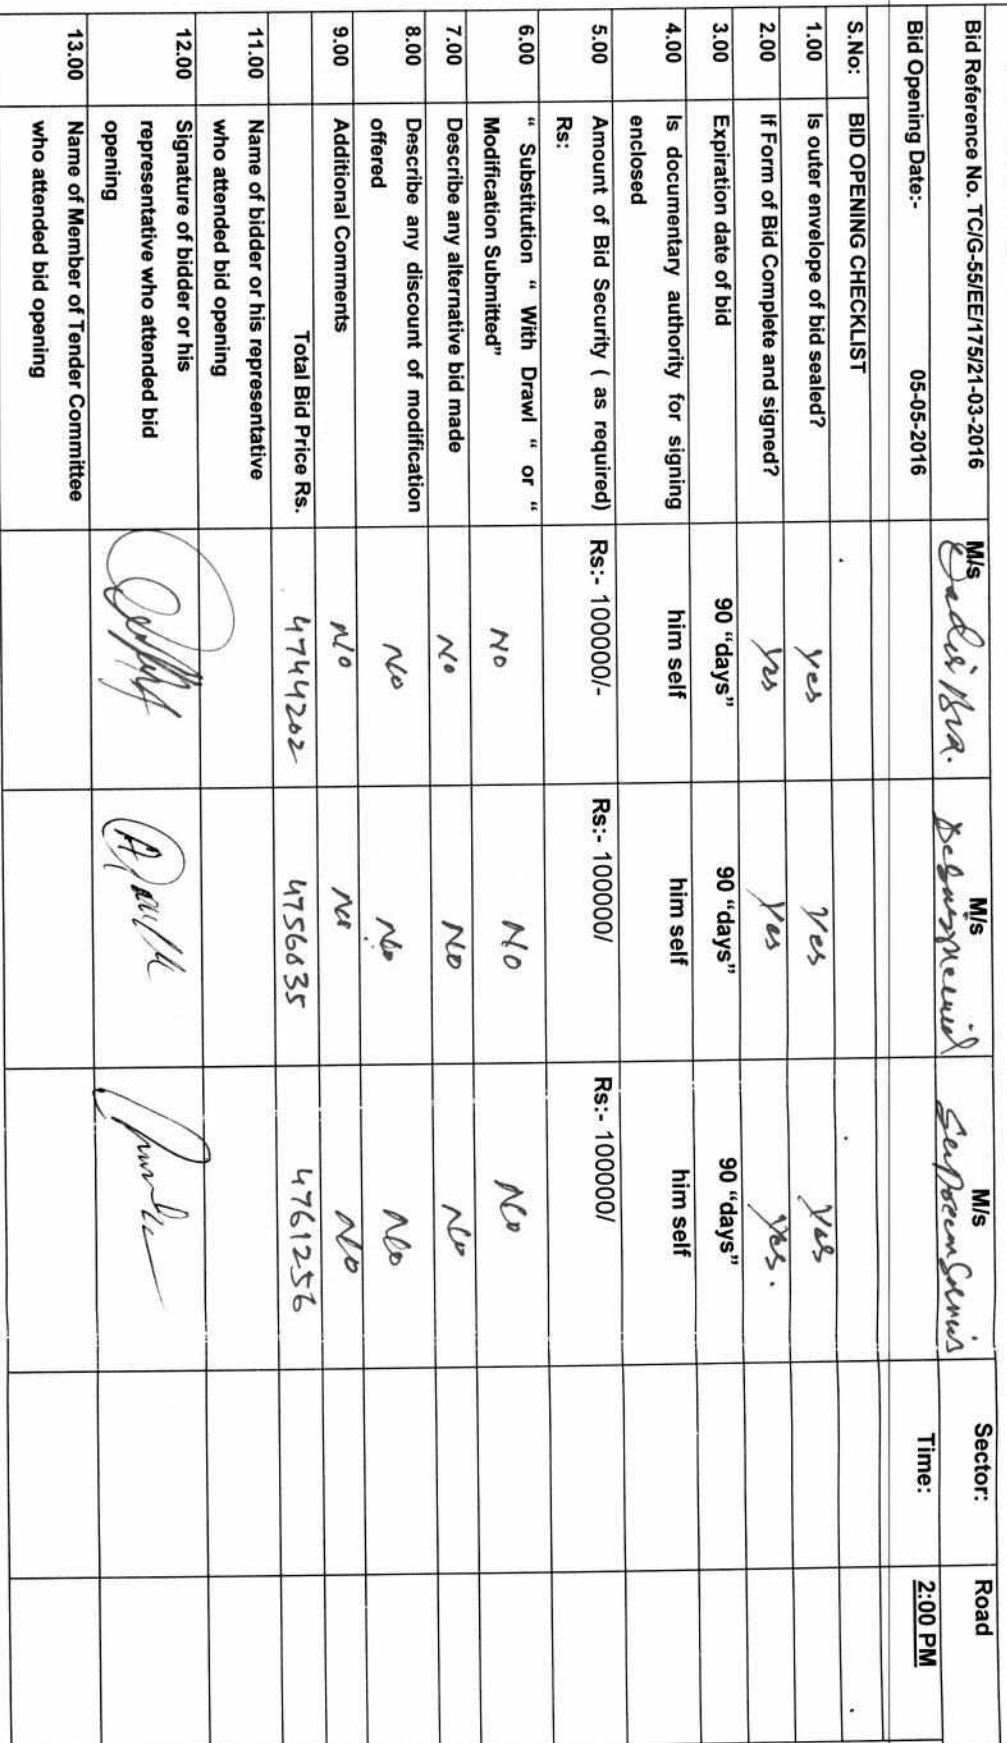 Bid Reference No. TC/G-55/EE/175/21-03-2016 M/s M/s M/s Sector: Road
Bid Opening Date:- 05-05-2016 Time: 2:00 PM
S.No: BID OPENING CHECKLIST
1.00 Is outer envelope of bid sealed? Yes Yes Yes
2.00 If Form of Bid Complete and signed? Yes Yes Yes.
3.00 Expiration date of bid 90 “days” 90 “days” 90 “days”
4.00 Is documentary authority for signing him self him self him self
enclosed
5.00 Amount of Bid Security ( as required) Rs:- 100000/- Rs:- 100000/ Rs:- 100000/
Rs:
6.00 “ Substitution “ With Drawl “ or “ No No No
Modification Submitted”
7.00 Describe any alternative bid made No No No
8.00 Describe any discount of modification No No No
offered
9.00 Additional Comments No No No
Total Bid Price Rs. 4744202 4756635 4761256
11.00 Name of bidder or his representative
who attended bid opening
12.00 Signature of bidder or his
representative who attended bid
opening
13.00 Name of Member of Tender Committee
who attended bid opening